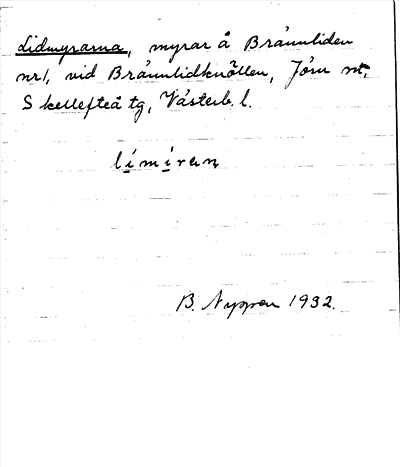 Lidmyrarna, myrar å Brännliden
nr 1, vid Brännlidknöllen, Jörn
Skellefteå tg, Västerb. l.
límíran
B. Nyman 1932.